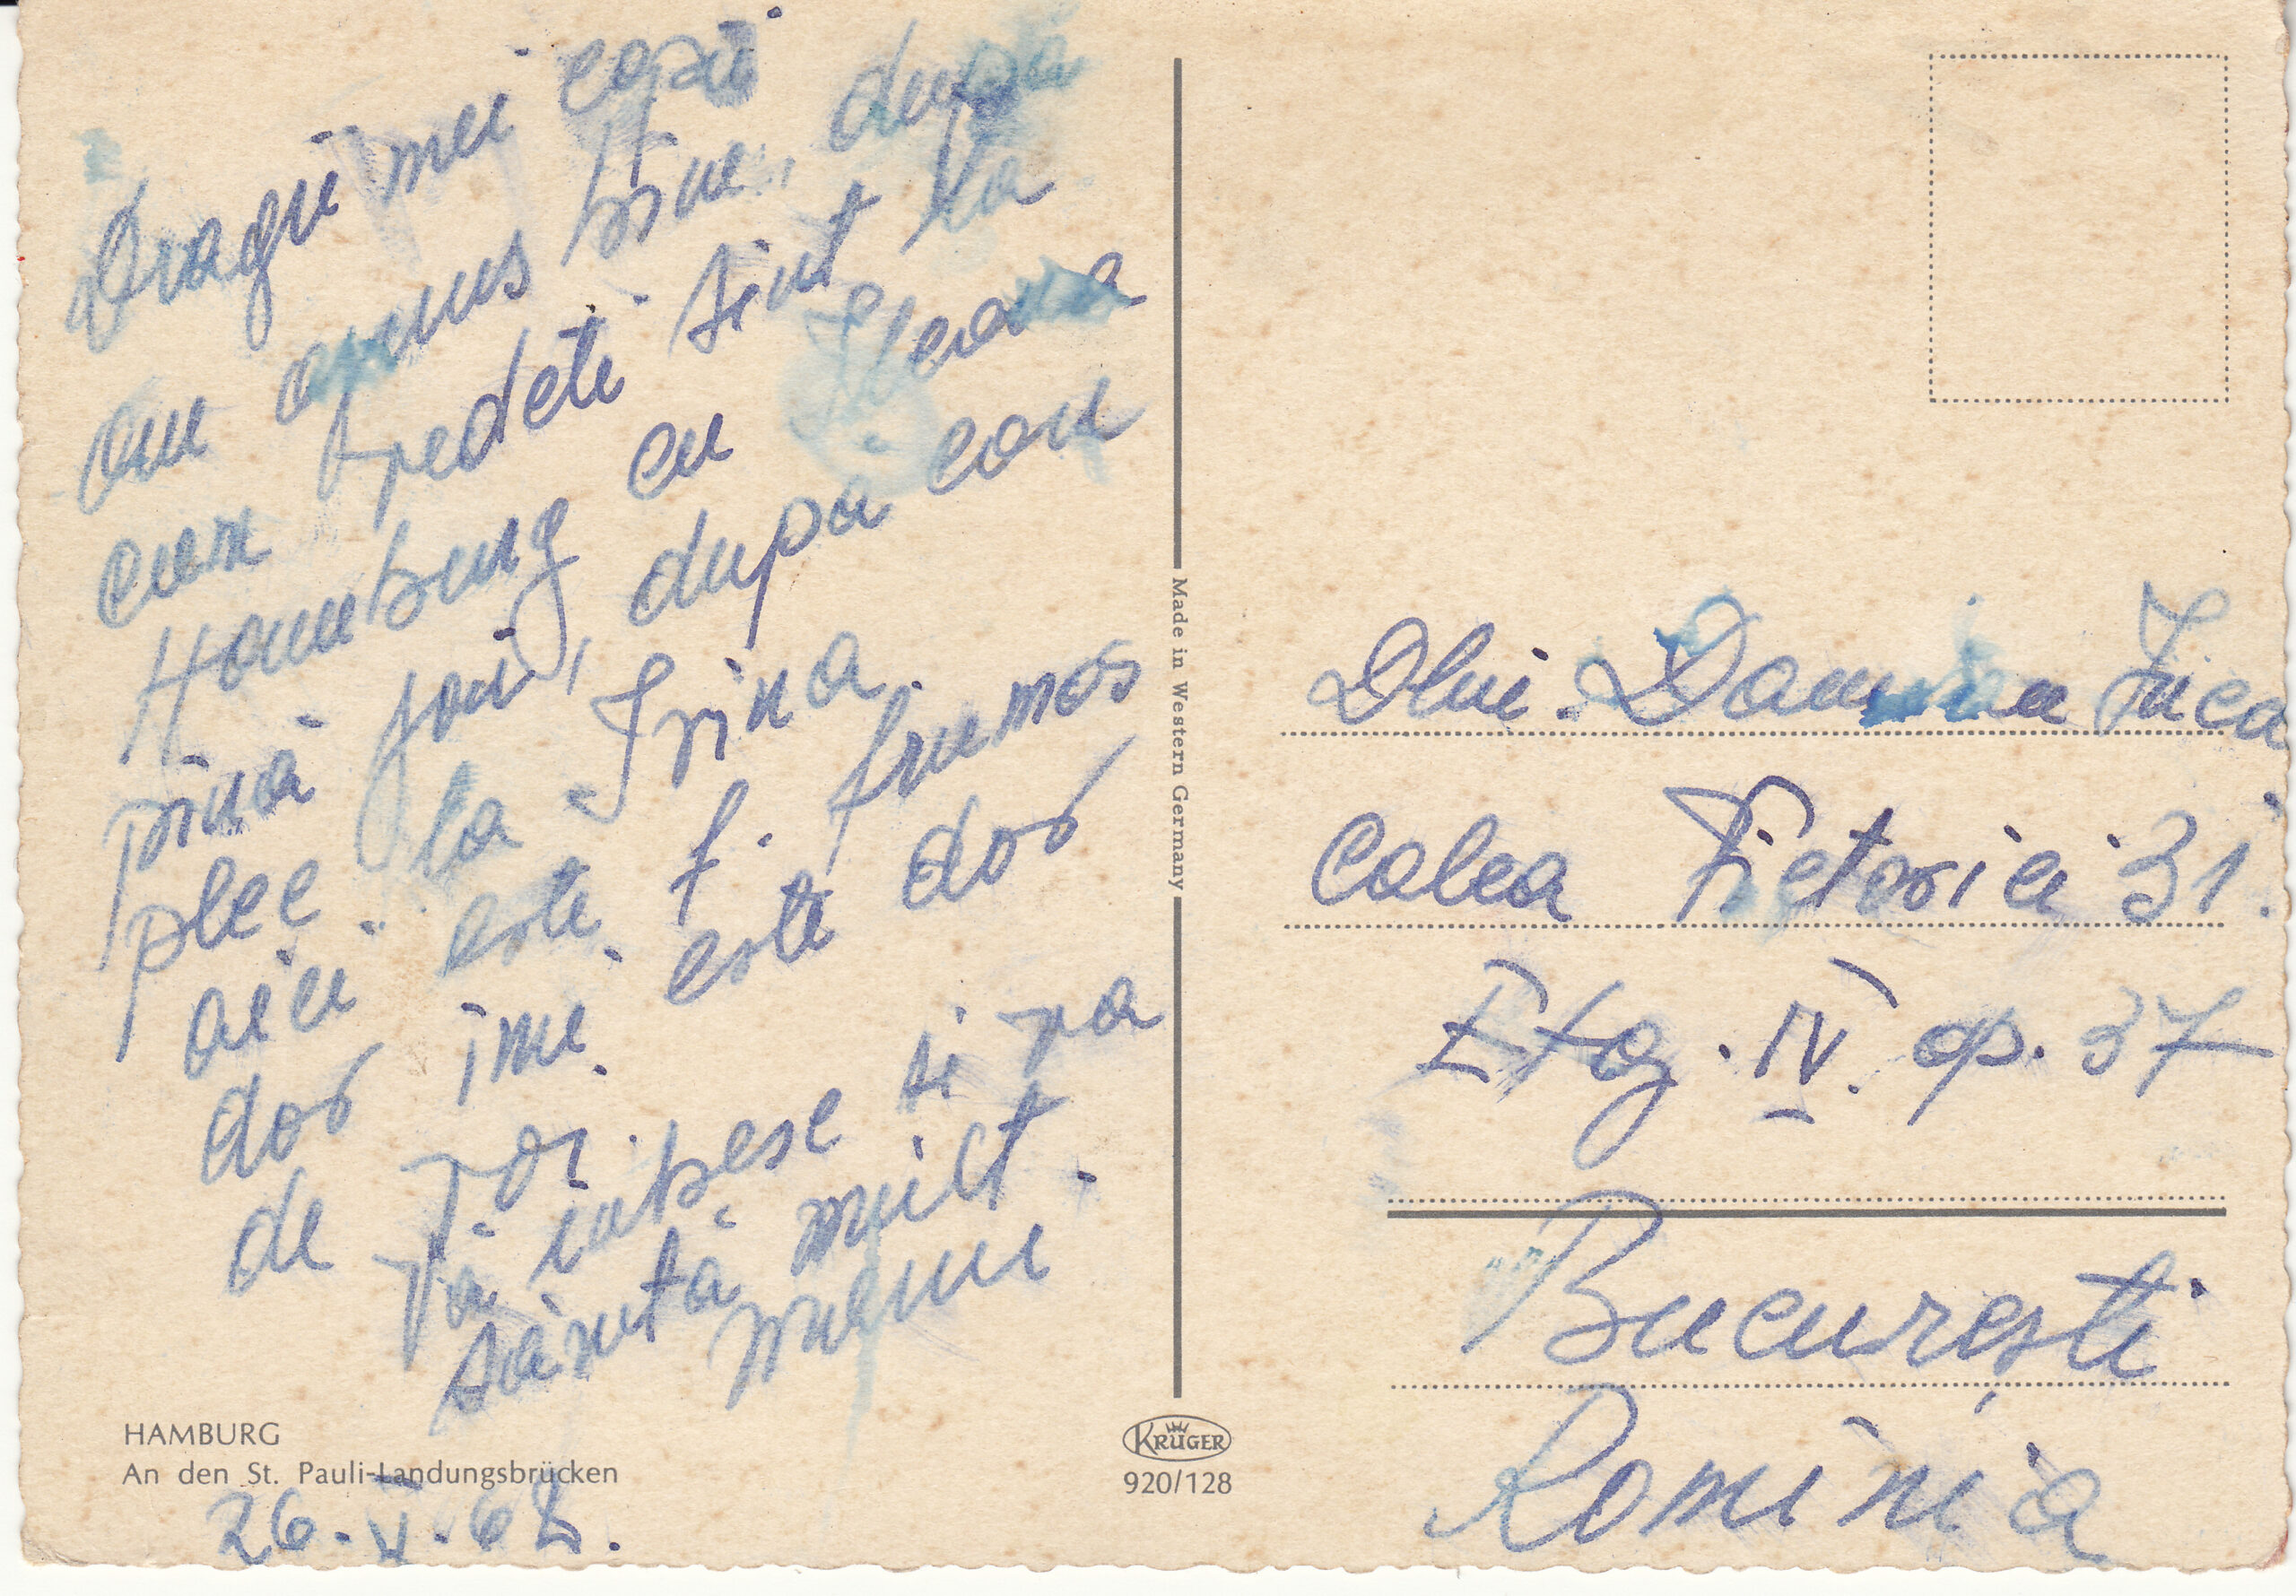 Dragii mei copii
am ajuns bine, după
cum vedeti sint la
Hamburg cu Ileana
pînă joi, după cari
plec la Irina.
aici este f. frumos
dor îmi este dor
de voi.
Vă iubesc si va
sărută mult.
mami
HAMBURG
An den St. Pauli-Landungsbrücken
26.V.68.
Made in Western Germany
KRÜGER
920/128
Dlui. Damian
Calea Victoriei 31.
Etaj. IV. ap. 37
București
Romînia